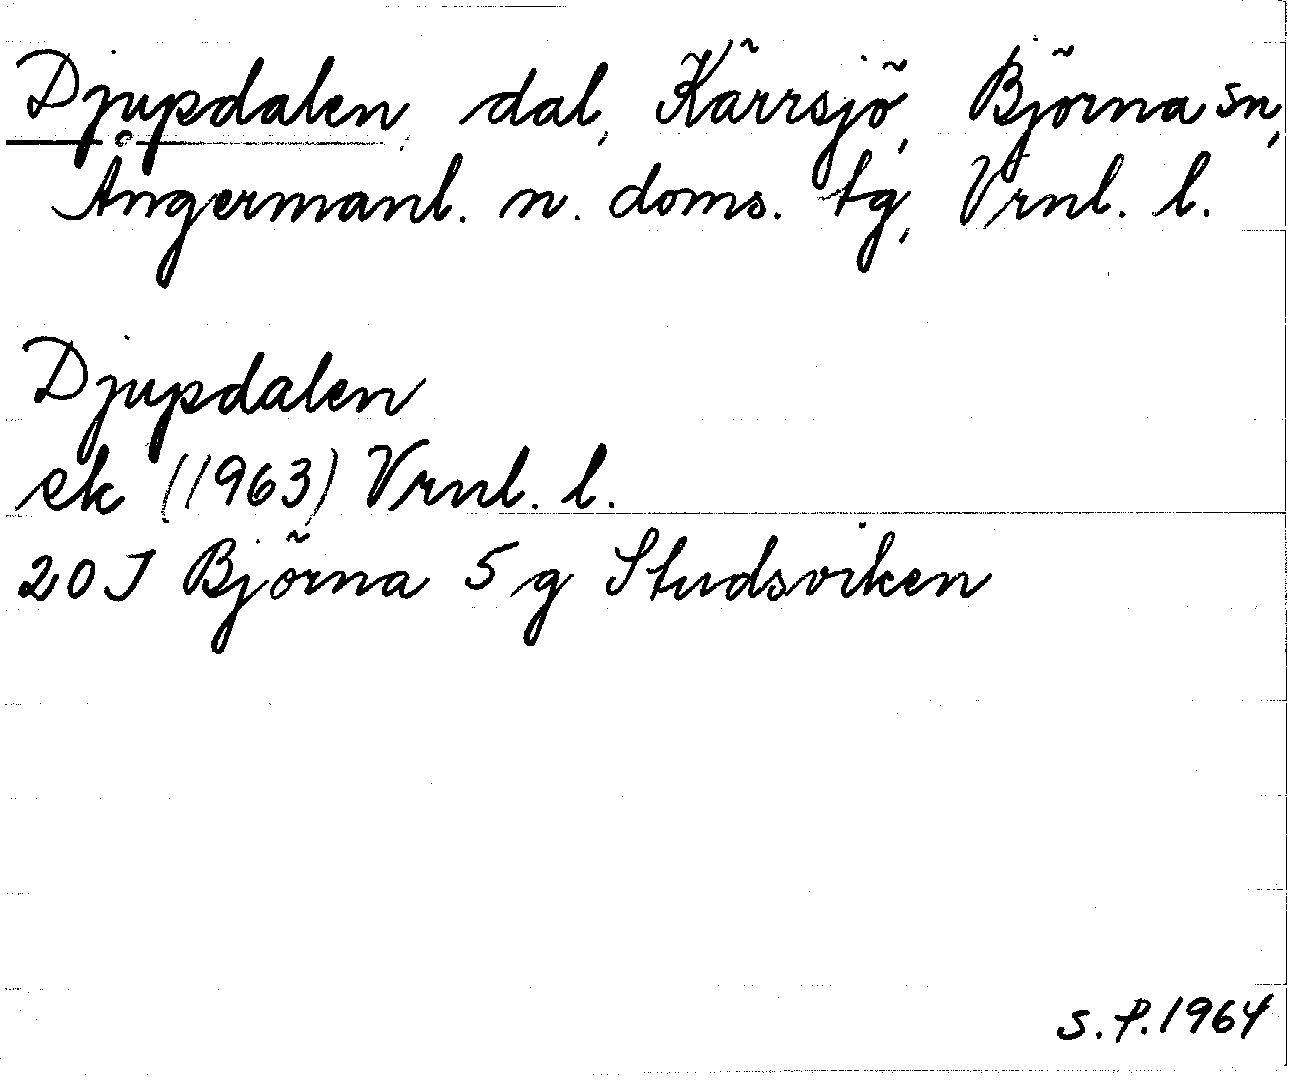 Djupdalen, dal, Kärrsjö, Björna sn,
Ångermanl. n. doms. tg, Vrnl. l.
Djupdalen
ek (1963) Vrnl. l.
20 J Björna 5 g Studsviken
S. P. 1964